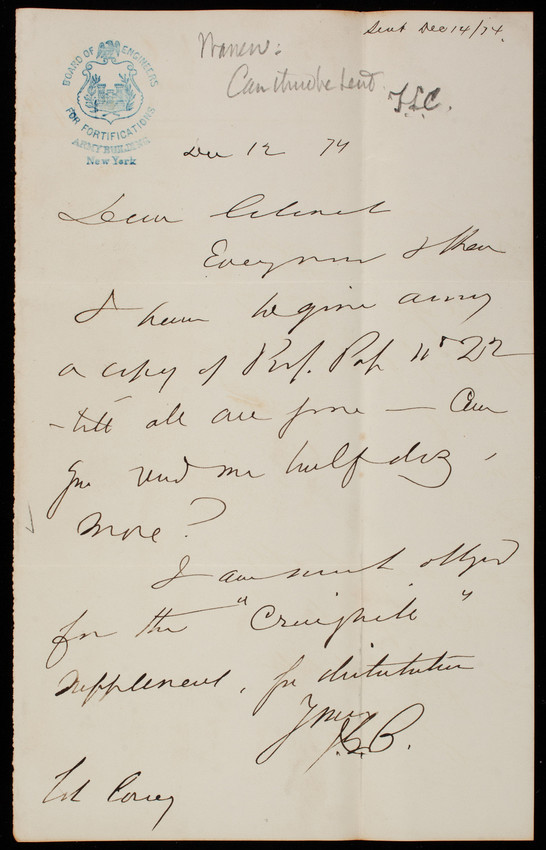 Sent Dec 14/74.
Can it not be sent
T.L.C.
BOARD OF ENGINEERS
FOR FORTIFICATIONS
ARMY BUILDING
New York
Dec 12 74
Dear Colonel
Every now & then
I have to give away
a copy of Prof. Pap No 22
- till all are gone - Can
you send me half doz,
more?
I am much obliged
for the "Craighill"
supplement, for distribution
Yours
Col Casey